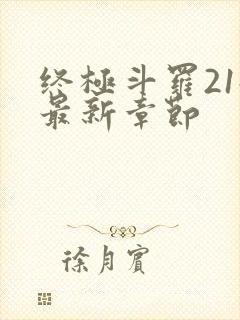 终極斗羅21
最新章節
徐月賓